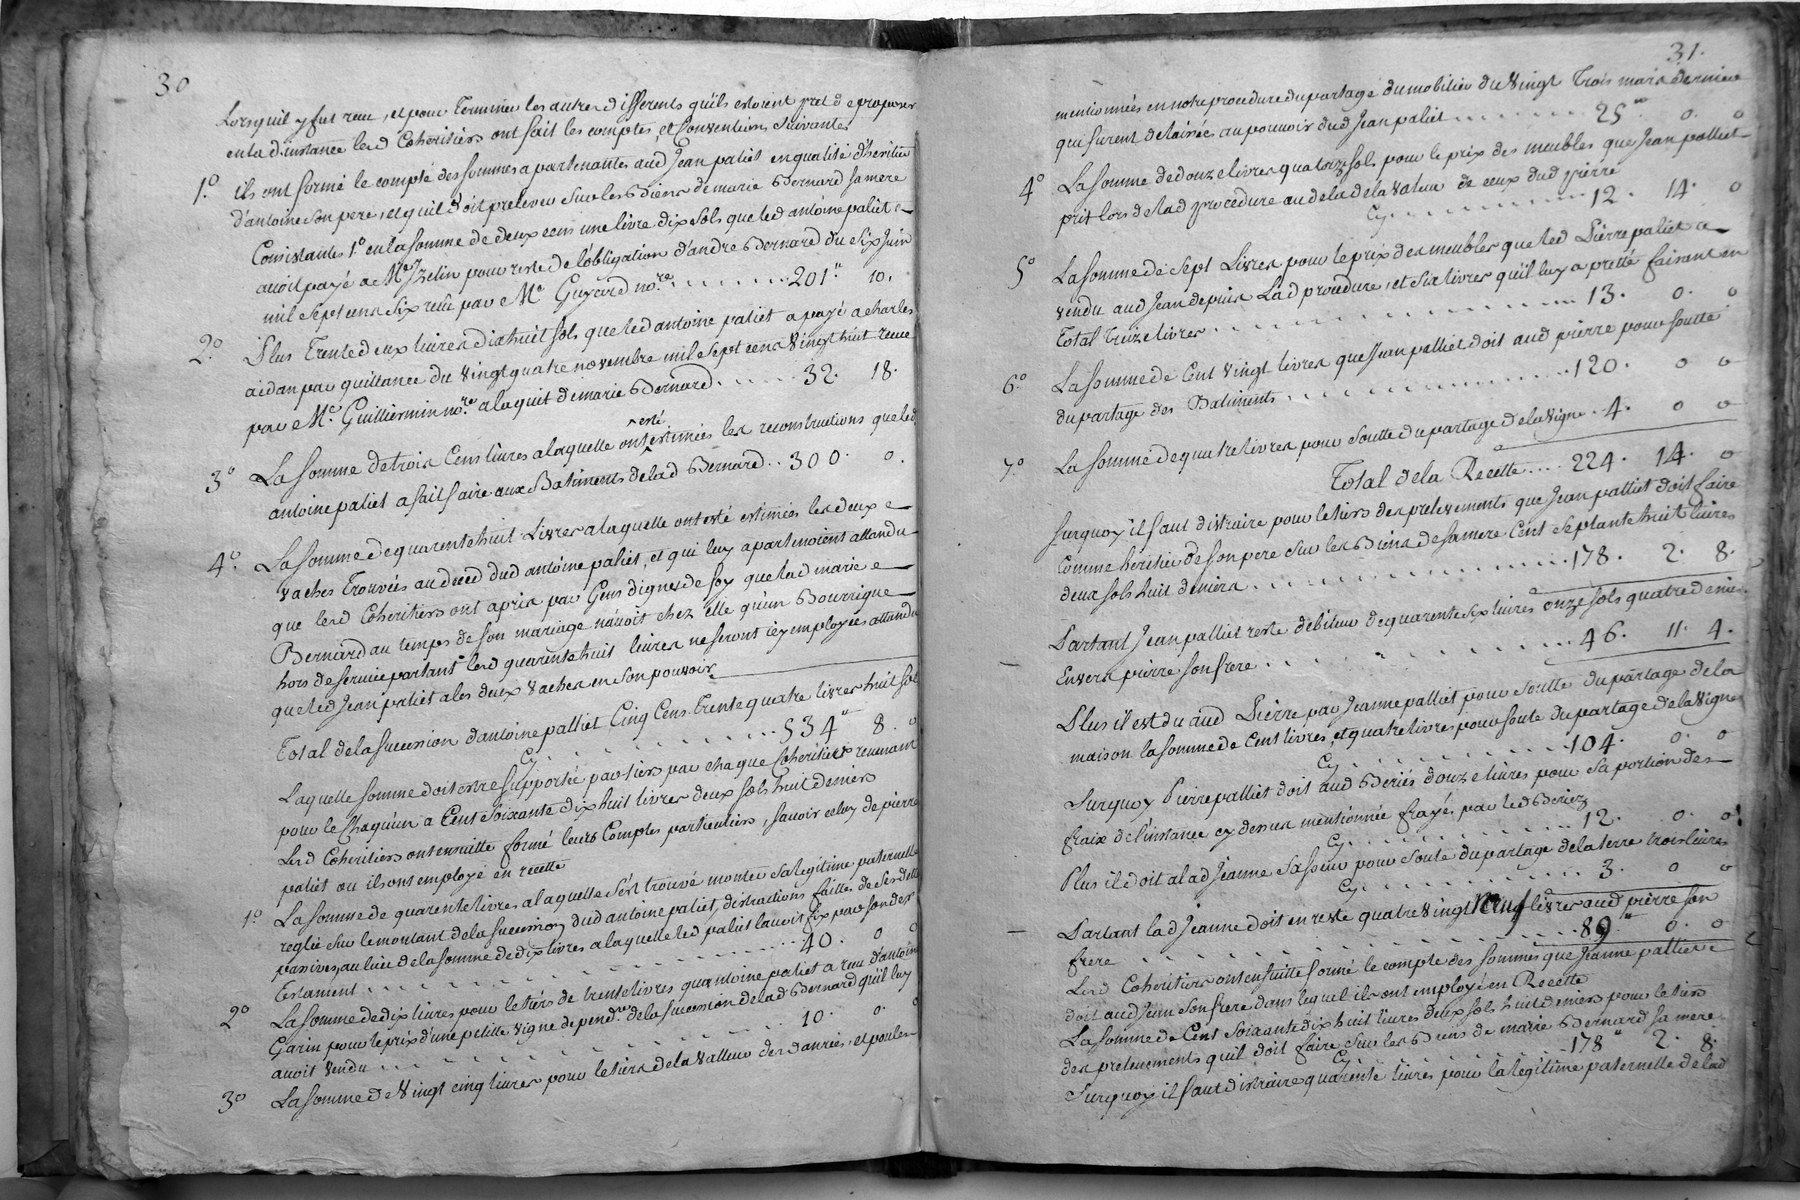 30
Lorsquil y fut recu, et pour Terminer les autres differents quils estoient pret de proposer
en lad. instance lesd Coheritiers ont fait les comptes et Conventions suivantes
1.º ils ont formé le compte des sommes apartenantes aud Jean paliet en qualité d'heritier
d'antoine son pere, et quil doit prelever sur les Biens de marie Bernard sa mere
Consistantes 1.º en la somme de deux cens une livre dix sols que led antoine paliet
avoit payé a Me. Jzelin pour reste de l'obligation d'andre Bernard du six Juin
mil sept cens six reçue par Me. Guyard nore. 201" 10.
2.º Plus Trente deux livres dix huit sols que led antoine paliet a payé a charles
aidan par quittance du vingt quatre novembre mil sept cens vingt huit reçue
par Me. Guilliermin nore. a laquit de marie Bernard. 32. 18.
3º La somme de trois Cens livres a laquelle ont esté estimées les reconstructions que led
antoine paliet a fait faire aux Batiments de lad Bernard .. 300. 0.
4.º La somme de quarente huit Livres a laquelle ont esté estimées les deux
vaches Trouvées au deced dud antoine paliet, et qui luy apartenoient attendu
que lesd Coheritiers ont apris par Gens dignes de foy que lad marie
Bernard au temps de son mariage n'avoit chez elle qu'un Bourrique
hors de service partant lesd quarente huit livres ne seront icy employées attendu
que led Jean paliet a les deux vaches en son pouvoir
Total de la succession d'antoine palliet Cinq Cens Trente quatre livres huit sol
Cy 534" 8. 0
Laquelle somme doit estre supportée par tiers par chaque Coheritier revenant
pour le Chaqu'un a Cent soixante dix huit livres deux sols huit deniers
Lesd Coheritiers ont ensuitte formé leurs Comptes particuliers, savoir celuy de pierre
paliet ou ils ont employé en recette
1º La somme de quarente livres a laquelle s'est trouvé monter sa legitime paternelle
reglée sur le montant de la succession dud antoine paliet, distractions faittes de ses dette
passives, au lieu de la somme de dix livres a laquelle led paliet l'avoit fix par son der
Testament 40. 0 0
2º La somme de dix livres pour le tiers de trente livres qu'antoine paliet a reçu d'antoine
Garin pour le prix d'une petitte vigne dependte. de la succession de lad Bernard qu'il luy
avoit vendu 10. 0. 0
3º La somme de vingt cinq livres pour le tiers de la valleur des danrées, et poules
31.
mentionnées en notre procedure du partage du mobilier du vingt Trois mars dernier
qui furent delaissées au pouvoir dud Jean paliet 25" 0. 0
4º La somme de douze livres quatorze sols pour le prix des meubles que Jean palliet
prit lors de lad procedure au dela de la valeur de ceux dud pierre
Cy 12. 14. 0
5º La somme de sept Livres pour le prix des meubles que led Pierre paliet a
vendu aud Jean depuis Lad procedure, et six livres qu'il luy a pretté faisant en
Total treize livres 13. 0. 0
6º La somme de Cent vingt livres que Jean palliet doit aud pierre pour soutte
du partage des Batiments 120. 0 0
7º La somme de quatre livres pour soutte du partage de la vigne . 4. 0 0
Total de la Recette .... 224. 14. 0
Surquoy il faut distraire pour le tiers des prelevements que Jean palliet doit faire
Comme heritier de son pere sur les Biens de sa mere Cent septante huit livres
deux sols huit deniers 178. 2. 8.
Partant Jean palliet reste debiteur de quarente six livres onze sols quatre deniers
Envers pierre son frere 46. 11. 4.
Plus il est du aud Pierre par Jeanne palliet pour soutte du partage de la
maison la somme de Cent livres, et quatre livres pour soute du partage de la vigne
Cy 104. 0. 0
Surquoy Pierre palliet doit aud Beriés douze livres pour sa portion des
fraix de l'instance cy dessus mentionnée frayés par led Beriez
Cy 12. 0. 0
Plus il doit a lad Jeanne sa soeur pour soute du partage de la terre trois livres
Cy 3. 0 0
Partant lad Jeanne doit en reste quatre vingt neuf livres aud pierre son
frere 89" 0. 0
Lesd Coheritiers ont ensuitte formé le compte des sommes que Jeanne palliet
doit aud Jean son frere dans lequel ils ont employé en Recette
La somme de Cent soixante dix huit livres deux sols huit deniers pour le tiers
des prelevements qu'il doit faire sur les Biens de marie Bernard sa mere
Cy 178" 2. 8.
Surquoy il faut distraire quarente livres pour la legitime paternelle de lad